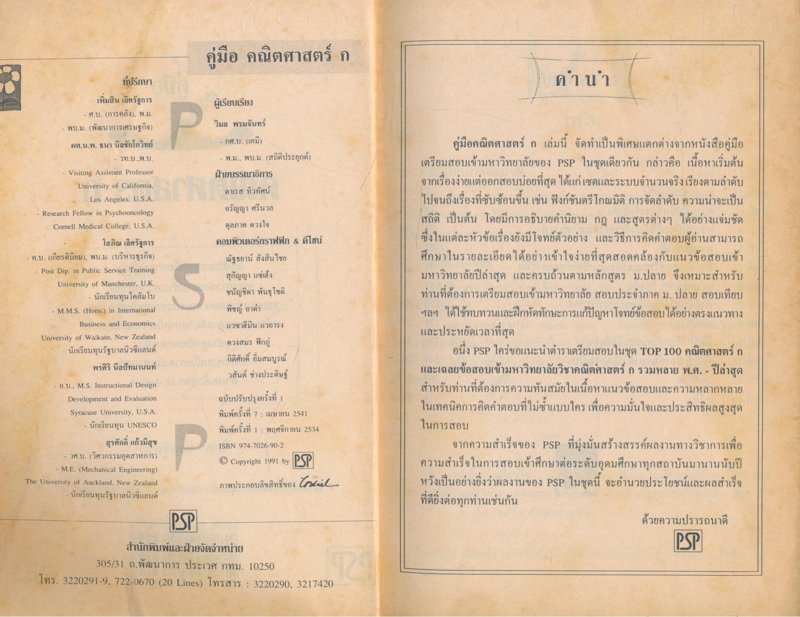 คู่มือ คณิตศาสตร์ ก
ที่ปรึกษา
เพิ่มสิน เลิศรัฐการ
- ศ.บ. (การคลัง), พ.ม.
- พบ.ม. (พัฒนาการเศรษฐกิจ)
ผศ.น.พ. ธนา นิลชัยโกวิทย์
- วท.บ.,พ.บ.
- Visiting Assistant Professor
University of California,
Los Angeles, U.S.A.
- Research Fellow in Psychooncology
Cornell Medical College, U.S.A.
โสภิณ เลิศรัฐการ
- ศ.บ. (เกียรตินิยม), พบ.ม. (บริหารธุรกิจ)
- Post Dip. in Public Service Training
University of Manchester, U.K.
- นักเรียนทุนโคลัมโบ
- M.M.S. (Hons.) in International
Business and Economics
University of Waikato, New Zealand
- นักเรียนทุนรัฐบาลนิวซีแลนด์
พรศิริ นีลปัทมานนท์
- อ.บ., M.S. Instructional Design
Development and Evaluation
Syracuse University, U.S.A.
- นักเรียนทุน UNESCO
สุรศักดิ์ แก้วมีสุข
- วศ.บ. (วิศวกรรมอุตสาหการ)
- M.E. (Mechanical Engineering)
The University of Auckland, New Zealand
- นักเรียนทุนรัฐบาลนิวซีแลนด์
P
S
P
ผู้เรียบเรียง
วิมล พรมจันทร์
- กศ.บ. (เคมี)
- พ.ม., พบ.ม. (สถิติประยุกต์)
ฝ่ายบรรณาธิการ
ดาเรส ทิวทัศน์
อรัญญา ศรีนวล
ดุลภาค ดวงใจ
คอมพิวเตอร์กราฟฟิก & ดีไซน์
ณัฐธยาน์ สังสินไชย
สุกัญญา แซ่เฮ้ง
ชนัญชิดา พันธุโชติ
พิชญ์ อาดำ
แวซาตีมิน แวอารง
ดวงสมร ฟักภู่
กิติศักดิ์ ยิ้มสมบูรณ์
วสันต์ ช่างประดิษฐ์
ฉบับปรับปรุงครั้งที่ 1
พิมพ์ครั้งที่ 7 : เมษายน 2541
พิมพ์ครั้งที่ 1 : พฤศจิกายน 2534
ISBN 974-7026-90-2
© Copyright 1991 by PSP
ภาพประกอบลิขสิทธิ์ของ
PSP
สำนักพิมพ์และฝ่ายจัดจำหน่าย
305/31 ถ.พัฒนาการ ประเวศ กทม. 10250
โทร. 3220291-9, 722-0670 (20 Lines) โทรสาร : 3220290, 3217420
คำนำ
คู่มือคณิตศาสตร์ ก เล่มนี้ จัดทำเป็นพิเศษแตกต่างจากหนังสือคู่มือ
เตรียมสอบเข้ามหาวิทยาลัยของ PSP ในชุดเดียวกัน กล่าวคือ เนื้อหาเริ่มต้น
จากเรื่องง่ายแต่ออกสอบบ่อยที่สุด ได้แก่ เซตและระบบจำนวนจริง เรียงตามลำดับ
ไปจนถึงเรื่องที่ซับซ้อนขึ้น เช่น ฟังก์ชันตรีโกณมิติ การจัดลำดับ ความน่าจะเป็น
สถิติ เป็นต้น โดยมีการอธิบายคำนิยาม กฎ และสูตรต่างๆ ได้อย่างแจ่มชัด
ซึ่งในแต่ละหัวข้อเรื่องยังมีโจทย์ตัวอย่าง และวิธีการคิดคำตอบผู้อ่านสามารถ
ศึกษาในรายละเอียดได้อย่างเข้าใจง่ายที่สุดสอดคล้องกับแนวข้อสอบเข้า
มหาวิทยาลัยปีล่าสุด และครบถ้วนตามหลักสูตร ม.ปลาย จึงเหมาะสำหรับ
ท่านที่ต้องการเตรียมสอบเข้ามหาวิทยาลัย สอบประจำภาค ม. ปลาย สอบเทียบ
ฯลฯ ได้ใช้ทบทวนและฝึกหัดทักษะการแก้ปัญหาโจทย์ข้อสอบได้อย่างตรงแนวทาง
และประหยัดเวลาที่สุด
อนึ่ง PSP ใคร่ขอแนะนำตำราเตรียมสอบในชุด TOP 100 คณิตศาสตร์ ก
และเฉลยข้อสอบเข้ามหาวิทยาลัยวิชาคณิตศาสตร์ ก รวมหลาย พ.ศ. - ปีล่าสุด
สำหรับท่านที่ต้องการความทันสมัยในเนื้อหาแนวข้อสอบและความหลากหลาย
ในเทคนิคการคิดคำตอบที่ไม่ซ้ำแบบใคร เพื่อความมั่นใจและประสิทธิผลสูงสุด
ในการสอบ
จากความสำเร็จของ PSP ที่มุ่งมั่นสร้างสรรค์ผลงานทางวิชาการเพื่อ
ความสำเร็จในการสอบเข้าศึกษาต่อระดับอุดมศึกษาทุกสถาบันมานานนับปี
หวังเป็นอย่างยิ่งว่าผลงานของ PSP ในชุดนี้ จะอำนวยประโยชน์และผลสำเร็จ
ที่ดียิ่งต่อทุกท่านเช่นกัน
ด้วยความปรารถนาดี
PSP